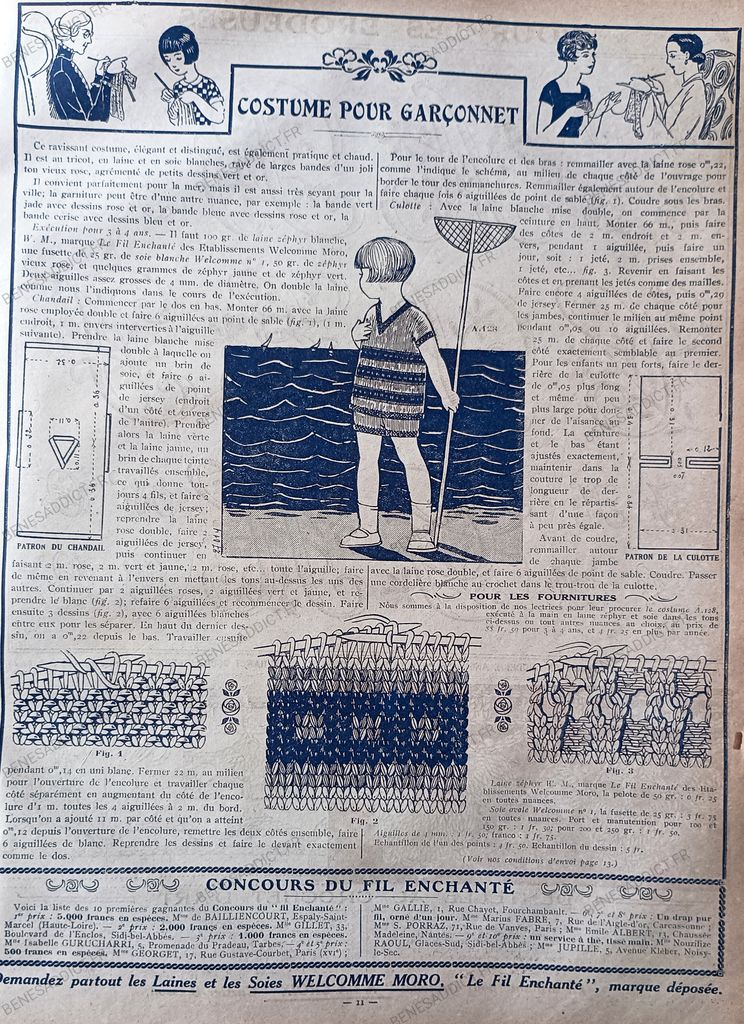 COSTUME POUR GARÇONNET
Ce ravissant costume, élégant et distingué, est également pratique et chaud.
Il est au tricot, en laine et en soie blanches, rayé de larges bandes d'un joli
ton vieux rose, agrémenté de petits dessins vert et or.
Il convient parfaitement pour la mer, mais il est aussi très seyant pour la
ville; la garniture peut être d'une autre nuance, par exemple : la bande vert
jade avec dessins rose et or, la bande bleue avec dessins rose et or, la
bande cerise avec dessins bleu et or.
Exécution pour 3 à 4 ans. — Il faut 100 gr. de laine zéphyr blanche,
W. M., marque Le Fil Enchanté des Etablissements Welcomme Moro,
une fusette de 25 gr. de soie blanche Welcomme n° 1, 50 gr. de zéphyr
vieux rose, et quelques grammes de zéphyr jaune et de zéphyr vert.
Deux aiguilles assez grosses de 4 mm. de diamètre. On double la laine
comme nous l'indiquons dans le cours de l'exécution.
Chandail : Commencer par le dos en bas. Monter 66 m. avec la laine
rose employée double et faire 6 aiguilles au point de sable (fig. 1), (1 m.
endroit, 1 m. envers interverties à l'aiguille
suivante). Prendre la laine blanche mise
double à laquelle on
ajoute un brin de
soie, et faire 6 ai-
guillées de point
de jersey (endroit
d'un côté et envers
de l'autre). Prendre
alors la laine verte
et la laine jaune, un
brin de chaque teinte
travaillés ensemble,
ce qui donne tou-
jours 4 fils, et faire 2
aiguillées de jersey;
reprendre la laine
rose double, faire 2
aiguillées de jersey,
puis continuer en
faisant 2 m. rose, 2 m. vert et jaune, 2 m. rose, etc... toute l'aiguille; faire
de même en revenant à l'envers en mettant les tons au-dessus les uns des
autres. Continuer par 2 aiguilles roses, 2 aiguilles vert et jaune, et re-
prendre le blanc (fig. 2); refaire 6 aiguilles et recommencer le dessin. Faire
ensuite 3 dessins (fig. 2), avec 6 aiguilles blanches
entre eux pour les séparer. En haut du dernier des-
sin, on a 0ᵐ,22 depuis le bas. Travailler ensuite
PATRON DU CHANDAIL
0.36
0.36
Fig. 1
pendant 0ᵐ,14 en uni blanc. Fermer 22 m. au milieu
pour l'ouverture de l'encolure et travailler chaque
côté séparément en augmentant du côté de l'enco-
lure d'1 m. toutes les 4 aiguilles à 2 m. du bord.
Lorsqu'on a ajouté 11 m. par côté et qu'on a atteint
0ᵐ,12 depuis l'ouverture de l'encolure, remettre les deux côtés ensemble, faire
6 aiguilles de blanc. Reprendre les dessins et faire le devant exactement
comme le dos.
Fig. 2
Pour le tour de l'encolure et des bras : remmailler avec la laine rose 0ᵐ,22,
comme l'indique le schéma, au milieu de chaque côté de l'ouvrage pour
border le tour des emmanchures. Remmailler également autour de l'encolure et
faire chaque fois 6 aiguillées de point de sable (fig. 1). Coudre sous les bras.
Culotte : Avec la laine blanche mise double, on commence par la
ceinture en haut. Monter 66 m., puis faire
des côtes de 2 m. endroit et 2 m. en-
vers, pendant 1 aiguille, puis faire un
jour, soit : 1 jeté, 2 m. prises ensemble,
1 jeté, etc... fig. 3. Revenir en faisant les
côtes et en prenant les jetés comme des mailles.
Faire encore 4 aiguillées de côtes, puis 0ᵐ,29
de jersey. Fermer 25 m. de chaque côté pour
les jambes, continuer le milieu au même point
pendant 0ᵐ,05 ou 10 aiguillées. Remonter
25 m. de chaque côté et faire le second
côté exactement semblable au premier.
Pour les enfants un peu forts, faire le der-
rière de la culotte
de 0ᵐ,05 plus long
et même un peu
plus large pour don-
ner de l'aisance au
fond. La ceinture
et le bas étant
ajustés exactement,
maintenir dans la
couture le trop de
longueur de der-
rière en le répartis-
sant d'une façon
à peu près égale.
Avant de coudre,
remmailler autour
de chaque jambe
avec la laine rose double, et faire 6 aiguillées de point de sable. Coudre. Passer
une cordelière blanche au crochet dans le trou-trou de la culotte.
A.128
PATRON DE LA CULOTTE
0.12
0.07
POUR LES FOURNITURES
Nous sommes à la disposition de nos lectrices pour leur procurer le costume A.128,
exécuté à la main en laine zéphyr et soie dans les tons
ci-dessus ou tout autres nuances au choix, au prix de
88 fr. 50 pour 3 à 4 ans, et 4 fr. 25 en plus par année.
Fig. 3
Laine zéphyr W. M., marque Le Fil Enchanté des Eta-
blissements Welcomme Moro, la pelote de 50 gr. : 6 fr. 25
en toutes nuances.
Soie ovale Welcomme n° 1, la fusette de 25 gr. : 3 fr. 75
en toutes nuances. Port et manutention pour 100 et
150 gr. : 1 fr. 50; pour 200 et 250 gr. : 1 fr. 50.
Aiguilles de 4 mm. : 1 fr. 50; franco : 2 fr. 75.
Echantillon de l'un des points : 4 fr. 50. Echantillon du dessin : 5 fr.
(Voir nos conditions d'envoi page 13.)
CONCOURS DU FIL ENCHANTÉ
Voici la liste des 10 premières gagnantes du Concours du "fil Enchanté" :
1ᵉʳ prix : 5.000 francs en espèces. Mᵐᵉ de BAILLIENCOURT, Espaly-Saint-
Marcel (Haute-Loire). — 2ᵉ prix : 2.000 francs en espèces. Mᵐᵉ GILLET, 33,
Boulevard de l'Enclos, Sidi-bel-Abbès. — 3ᵉ prix : 1.000 francs en espèces.
Mˡˡᵉ Isabelle GURUCHARRI, 5, Promenade du Pradeau, Tarbes. — 4ᵉ et 5ᵉ prix :
500 francs en espèces. Mᵐᵉ GEORGET, 17, Rue Gustave-Courbet, Paris (XVIᵉ) ;
Mᵐᵉ GALLIE, 1, Rue Chayet, Fourchambault. — 6ᵉ, 7ᵉ et 8ᵉ prix : Un drap pur
fil, orné d'un jour. Mᵐᵉ Marius FABRE, 7, Rue de l'Aigle-d'or, Carcassonne ;
Mᵐᵉ S. PORRAZ, 71, Rue de Vanves, Paris ; Mᵐᵉ Emile ALBERT, 11, Chaussée
Madeleine, Nantes. — 9ᵉ et 10ᵉ prix : un service à thé, tissé main. Mᵐᵉ Nouzilize
RAOUL, Glacés-Sud, Sidi-bel-Abbès ; Mᵐᵉ JUPILLE, 5, Avenue Kléber, Noisy-
le-Sec.
Demandez partout les Laines et les Soies WELCOMME MORO. "Le Fil Enchanté", marque déposée.
— 11 —
BENESADDICT.FR